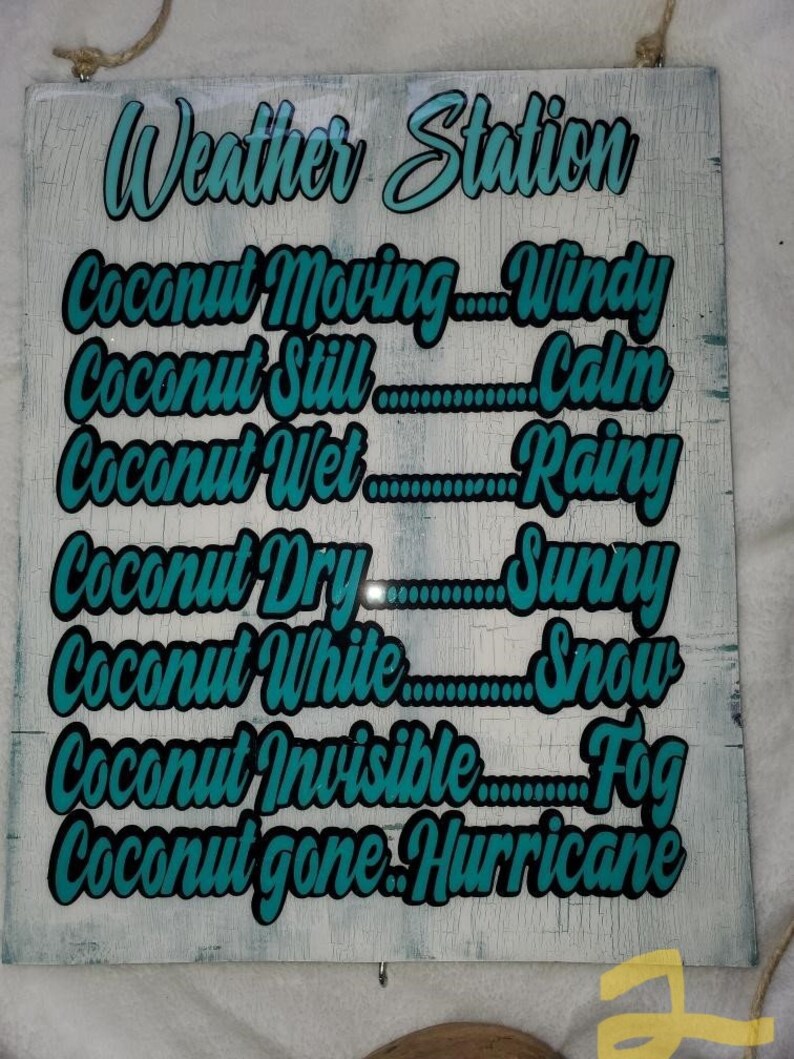 Weather Station
Coconut Moving.....Windy
Coconut Still ...............Calm
Coconut Wet ..............Rainy
Coconut Dry.............Sunny
Coconut White............Snow
Coconut Invisible..........Fog
Coconut gone..Hurricane
2